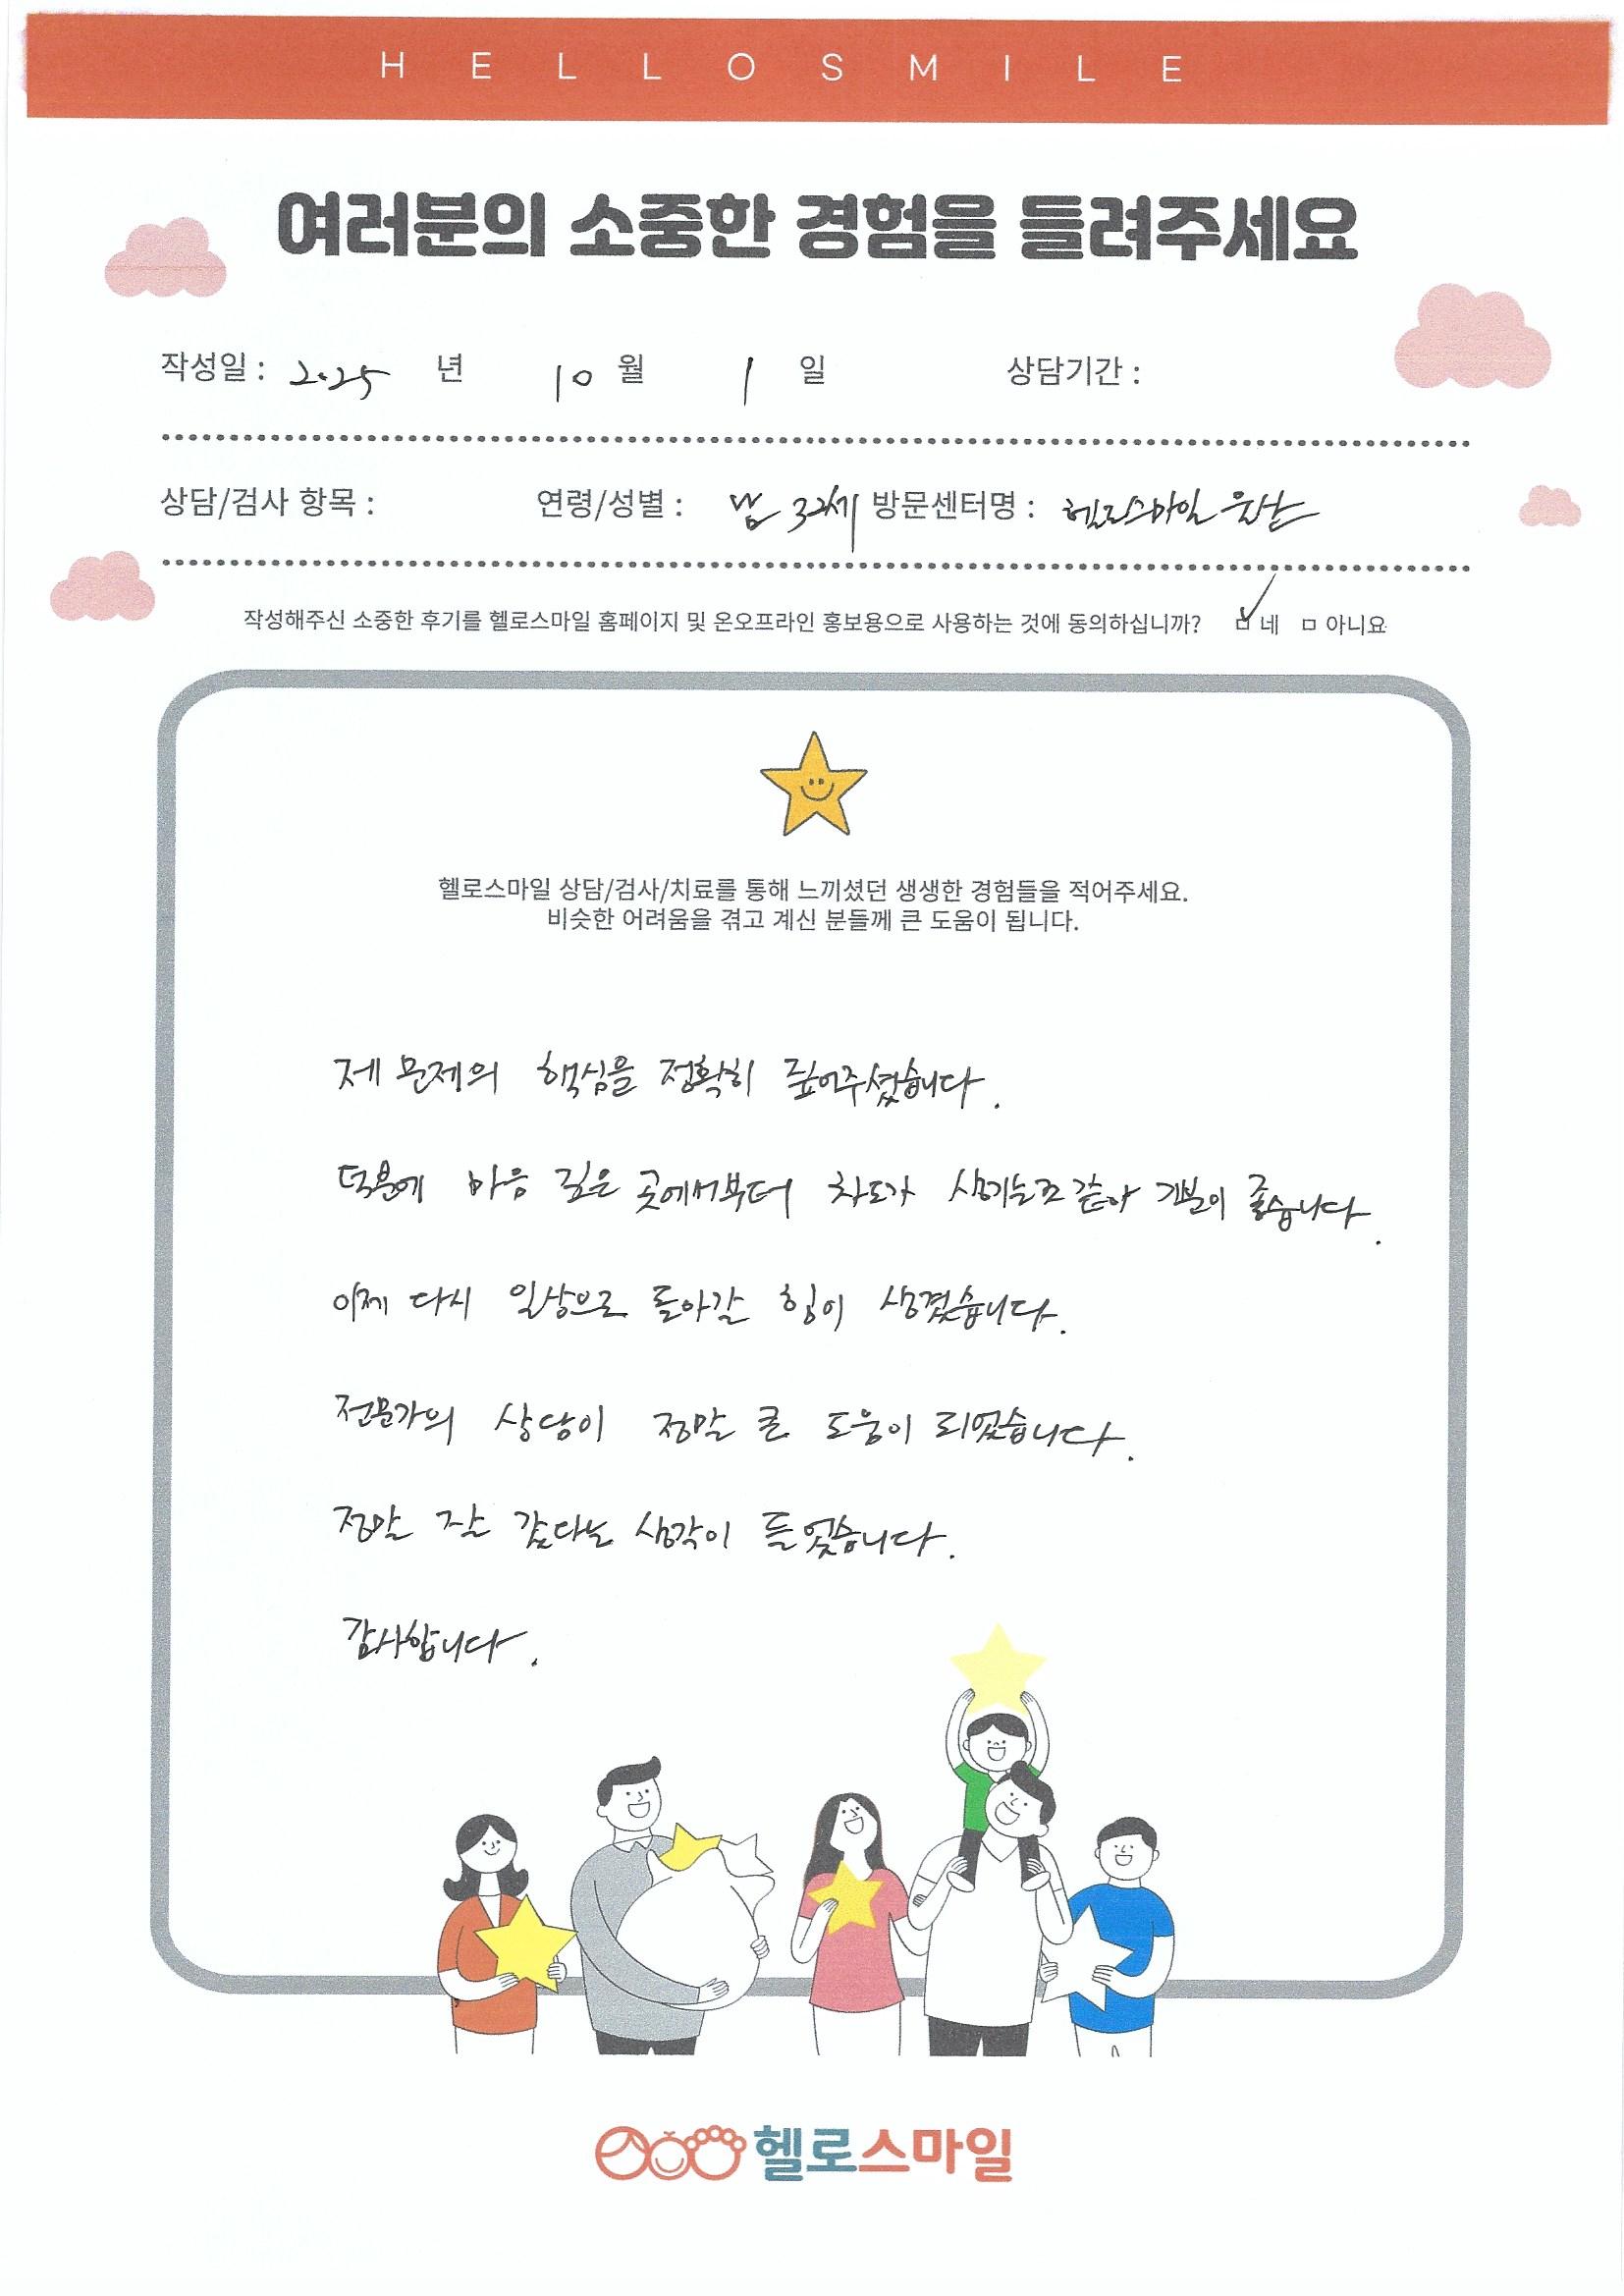 HELLOSMILE
여러분의 소중한 경험을 들려주세요
작성일 : 2025 년 10 월 1 일 상담기간 :
상담/검사 항목 : 연령/성별 : 남 32세 방문센터명 : 헬로스마일 울산
작성해주신 소중한 후기를 헬로스마일 홈페이지 및 온오프라인 홍보용으로 사용하는 것에 동의하십니까? ☑ 네 □ 아니요
헬로스마일 상담/검사/치료를 통해 느끼셨던 생생한 경험들을 적어주세요.
비슷한 어려움을 겪고 계신 분들께 큰 도움이 됩니다.
제 문제의 핵심을 정확히 짚어주셨습니다.
덕분에 마음 깊은 곳에서부터 차도가 생기는것 같아 기분이 좋습니다.
이제 다시 일상으로 돌아갈 힘이 생겼습니다.
전문가의 상담이 정말 큰 도움이 되었습니다.
정말 잘 갔다는 생각이 들었습니다.
감사합니다.
헬로스마일